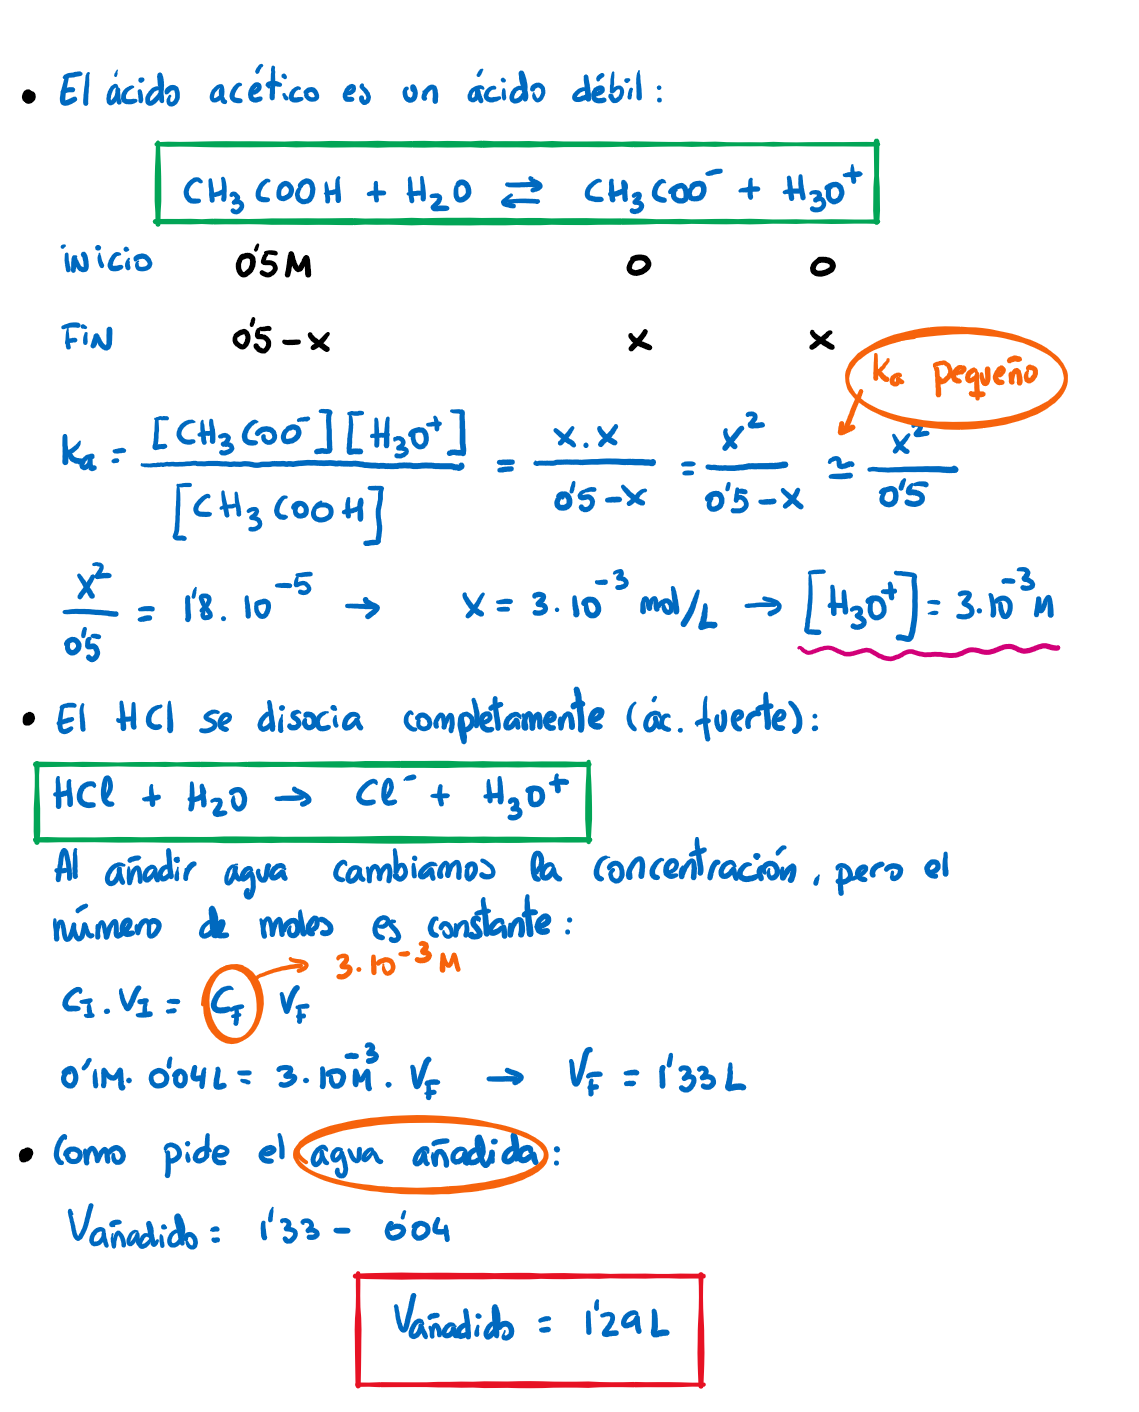 • El ácido acético es un ácido débil:
CH₃COOH + H₂O ⇄ CH₃COO⁻ + H₃O⁺
inicio 0'5M 0 0
FIN 0'5-x x x
Ka pequeño
Ka = [CH₃COO⁻][H₃O⁺] / [CH₃COOH] = x.x / 0'5-x = x² / 0'5-x ≃ x² / 0'5
x² / 0'5 = 1'8.10⁻⁵ → x = 3.10⁻³ mol/L → [H₃O⁺] = 3.10⁻³M
• El HCl se disocia completamente (ác. fuerte):
HCl + H₂O → Cl⁻ + H₃O⁺
Al añadir agua cambiamos la concentración, pero el
número de moles es constante:
3.10⁻³M
C_I.V_I = C_F V_F
0'1M. 0'04L = 3.10⁻³M. V_F → V_F = 1'33 L
• Como pide el agua añadida:
Vañadido = 1'33 - 0'04
Vañadido = 1'29 L